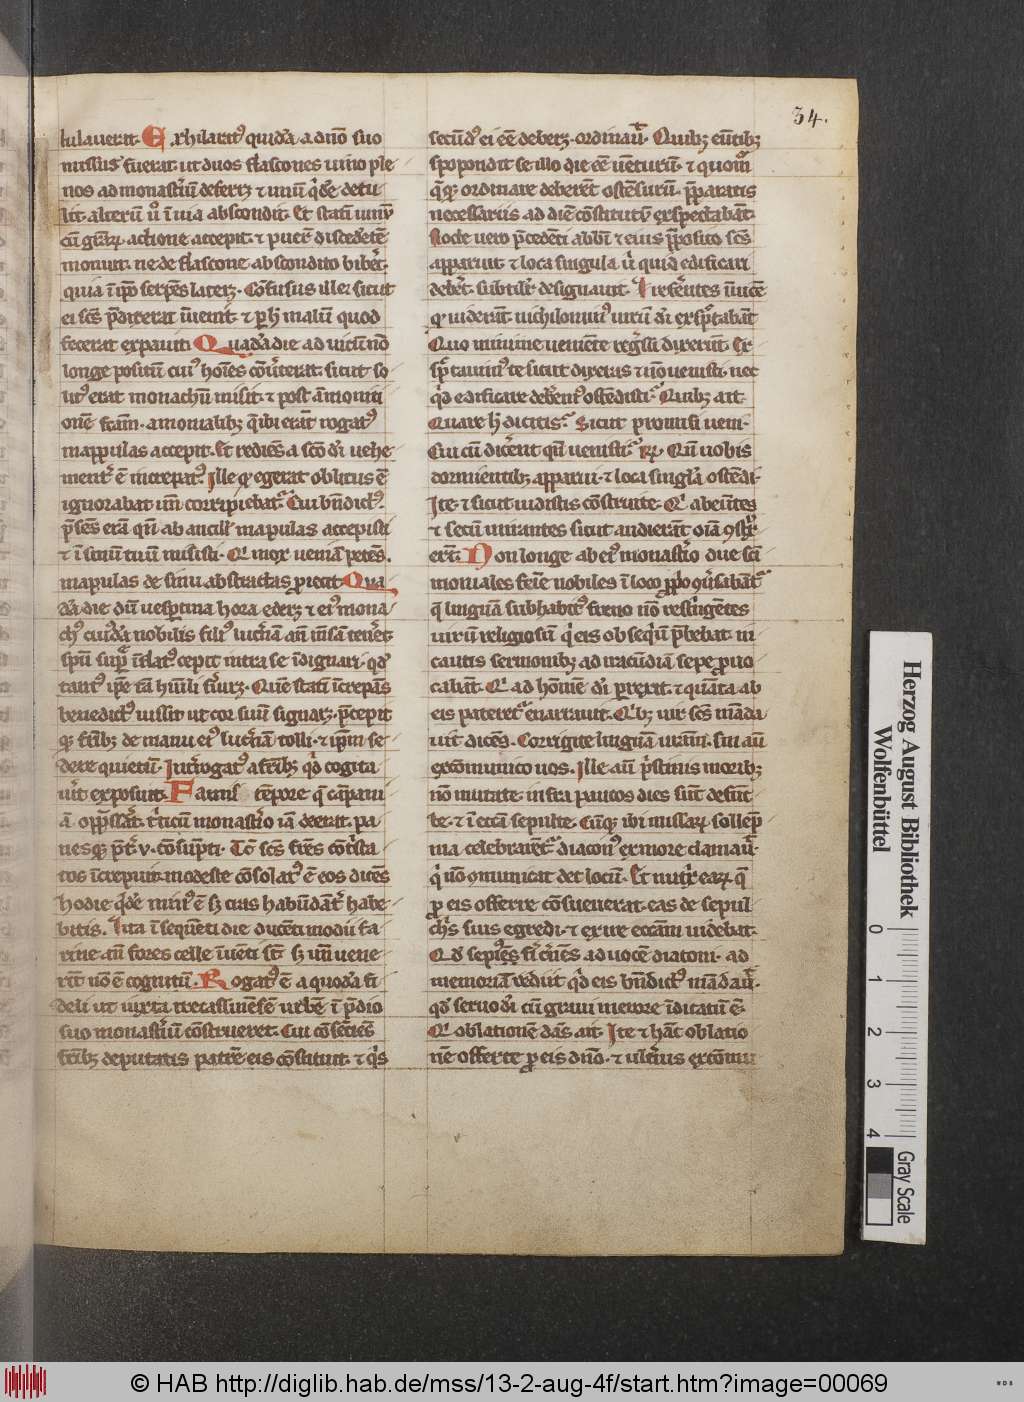 34.
lulauerit. Exhilarat᷒ quidā a dn̄o suo
missus fuerat ut duos flascones uino ple
nos ad monasteriū deferet ⁊ unū qͥdē detu
lit alterū ū ī uia abscondit. Et statī uirū
cū graꝝ actione accepit ⁊ puerū discedētē
monuit ne de flascone abscondito biberet
quia ī ip̄o serpēs lateret. Confusus ille sicut
ei scs̄ p̄dixerat īuenit ⁊ ꝑ h̄ malum quod
fecerat expauit Quadā die ad uicū nō
longe positū cui᷒ hoīes cōuerterat sicut so
lit᷒ erat monachū misit ⁊ post āmoniti
onē fc̄am. a monialibꝫ qͥ ibi erāt rogat᷒
mappulas accepit. Et rediēs a sc̄o dī uehe
ment᷒ ē increpat᷒ Ille qͥ egerat oblitus ē
ignorabat un̄ corripiebat᷒ Cui bn̄dict᷒.
p̄sēs erā qn̄ ab ancill᷒ mapulas accepisti
⁊ ī sinū tuū misisti. Qͥ mox ueniā petēs.
mapulas de sinu abstractas ꝓiecit Qua
dā die dū uespertina hora ederet ⁊ ei᷒ mona
ch᷒ cuiusdā nobilis fili᷒ lucernā an̄ mēsā teneret
spū suꝑ īflat᷒ cepit intra se īdignari. qd᷒
tant᷒ ip̄e tā humili suiret. Quē statī increpās
benedict᷒ iussit ut cor suū signaret. p̄cepit
qꝫ fr̄ibꝫ de manu ei᷒ lucernā tolli. ⁊ ip̄m se
dere quietū. Interrogat᷒ a fr̄ibꝫ qͥd cogita
uerit exposuit. Famis tēpore qͣ cāpani
ā oppressāt. triticū monasterio iā deerat. pa
nesqꝫ p̄ter v. cōsūpti. Tc̄ scs̄ fr̄es cōtrista
tos increpuit modeste cōsolat᷒ ē eos dicēs
hodie qͥdē min᷒ ē sꝫ cras habūdāter habe
bitis. Ita ī seqūeti die ducēti modii fa
rine an̄ fores celle īuēti sūt sꝫ un̄ uene
rīt nō ē cognitū. Rogat᷒ ē a quodā fi
deli ut iuxta treacinēsē urbē ī p̄dio
suo monasteriū cōstrueret. Cui cōsētiēs
fr̄ibꝫ deputatis patrē eis cōstituit ⁊ qͥs
secūd᷒ ei eē deberet. ordinauit. Quibꝫ eūtibꝫ
spopondit se illo die eē uēturū. ⁊ quomō
qͥqͥ ordinare deberēt ostēsurū. Preparatis
necessariis ad diē cōstitutū exspectabāt.
Nocte uero p̄cedēti abbī ⁊ eius p̄posito scs̄
apparuit ⁊ loca singula ubi quid edificari
deberet subtilit᷒ designauit. Presentes īuicē
qͥ uiderāt nichilomin᷒ uirū dī exspectabāt
Quo minime ueniēte regressi dixerūt. Ex
spectauim᷒ te sicut dixeras ⁊ nō uenisti. nec
qͥd edificare deberem᷒ ostēdisti. Quibꝫ ait
Quare h̄ dicitis. Sicut promisi ueni.
Cui cū dicerēt qn̄ uenisti. Rx. Qn̄ uobis
dormientibꝫ apparui. ⁊ loca singula ostēdi.
Ite. ⁊ sicut uidistis cōstruite. Qͥ abeūtes
⁊ secū mirantes sicut audierāt oīa ꝯstrux
erūt. Non longe ab ei᷒ monasterio due sc̄i
moniales feīe nobiles ī loco ꝓprio ꝯuersabāt᷒
qͥ linguā sub habitus freno nō restringentes
uirū religiosū qͥ eis obsequiū p̄bebat in
cautis sermonibꝫ ad iracūdiā sepe prouo
cabāt. Qͥ ad hominē dī perrexit. ⁊ quanta ab
eis pateret᷒ enarrauit. Qͥbꝫ uir scs̄ māda
uit dicēs. Corrigite linguā urām. sin aut̄
excōmunico uos. Ille aut̄ pristinis moribꝫ
nō mutate infra paucos dies sūt defūc
te. ⁊ ī ecc̄a sepulte. Cūqꝫ ibi missarū sollep̄
nia celebrarent᷒ diacon᷒ ex more clamauit.
qͥ nō ꝯmunicat det locū. Et nutrix earū qͥ
pro eis offerre cōsueuerat eas de sepul
chris suis egredi ⁊ exire ecc̄am uidebat.
Qd᷒ sepius fieri cernēs ad uocē diaconi. ad
memoriā reduit qͥd eis bn̄dict᷒ mādauit.
qd᷒ seruo dī cū graui merore īdicatū ē.
Qͥ oblationē dās ait. Ite ⁊ hāc oblatio
nē offerte ꝓ eis dn̄o. ⁊ ulterius excōmu
Herzog August Bibliothek
Wolfenbüttel
0 1 2 3 4
Gray Scale
© HAB http://diglib.hab.de/mss/13-2-aug-4f/start.htm?image=00069